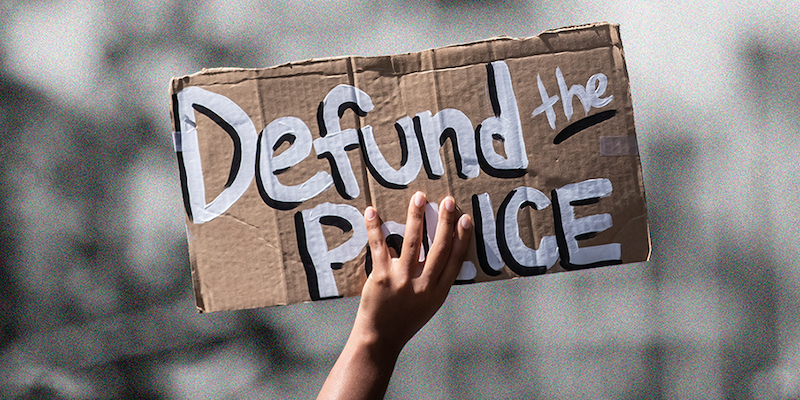 Defund the
POLICE